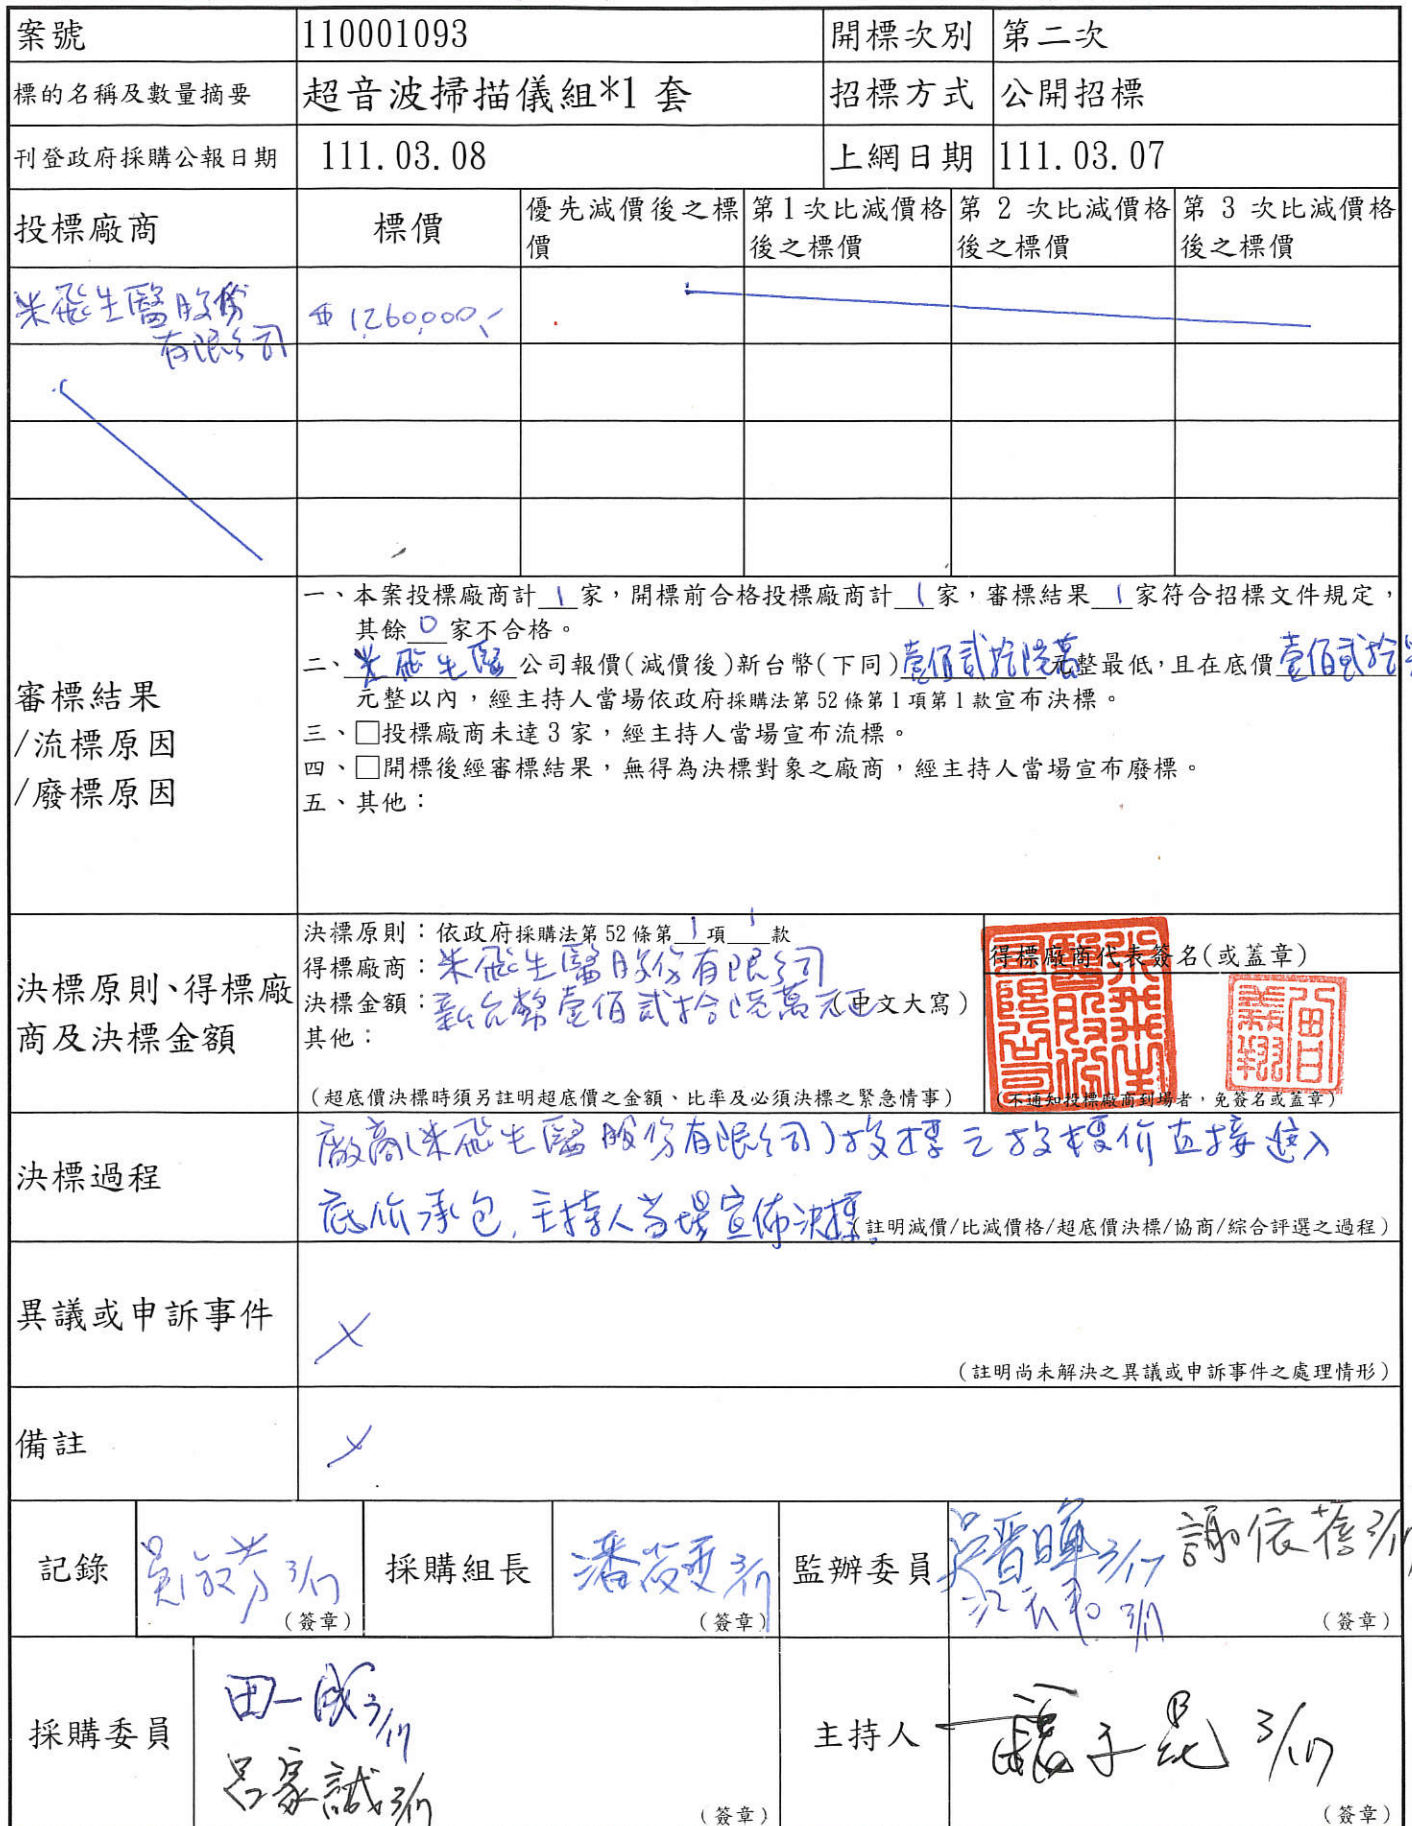 案號 110001093 開標次別 第二次
標的名稱及數量摘要 超音波掃描儀組*1 套 招標方式 公開招標
刊登政府採購公報日期 111.03.08 上網日期 111.03.07
投標廠商 標價 優先減價後之標價 第1次比減價格後之標價 第 2 次比減價格後之標價 第 3 次比減價格後之標價
米飛生醫股份
有限公司
1,260,000,-
審標結果
/流標原因
/廢標原因
一、本案投標廠商計 1 家，開標前合格投標廠商計 1 家，審標結果 1 家符合招標文件規定，
其餘 0 家不合格。
二、米飛生醫 公司報價(減價後)新台幣(下同)壹佰貳拾陸萬元整最低，且在底價 壹佰貳拾
元整以內，經主持人當場依政府採購法第52條第1項第1款宣布決標。
三、□投標廠商未達3家，經主持人當場宣布流標。
四、□開標後經審標結果，無得為決標對象之廠商，經主持人當場宣布廢標。
五、其他：
決標原則、得標廠
商及決標金額
決標原則：依政府採購法第52條第 1 項 1 款
得標廠商：米飛生醫股份有限公司
決標金額：新台幣壹佰貳拾陸萬元正(中文大寫)
其他：
(超底價決標時須另註明超底價之金額、比率及必須決標之緊急情事)
得標廠商代表簽名(或蓋章)
米飛生醫股份有限公司
(不通知投標廠商到場者，免簽名或蓋章)
決標過程
廠商(米飛生醫股份有限公司)投標之投標價直接進入
底價承包，主持人當場宣佈決標。
(註明減價/比減價格/超底價決標/協商/綜合評選之過程)
異議或申訴事件
(註明尚未解決之異議或申訴事件之處理情形)
備註
記錄 3/17 (簽章) 採購組長 潘 3/17 (簽章) 監辦委員 3/17 謝依蓓 3/17
3/17 (簽章)
採購委員 田一成 3/17
呂家誠 3/17 (簽章)
主持人 3/17 (簽章)